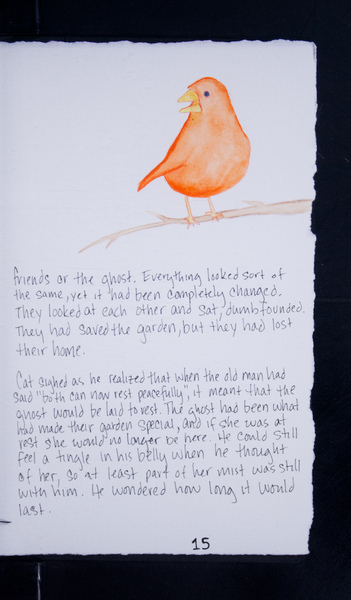 friends or the ghost. Everything looked sort of
the same, yet it had been completely changed.
They looked at each other and sat, dumbfounded.
They had saved the garden, but they had lost
their home.
Cat sighed as he realized that when the old man had
said "both can now rest peacefully", it meant that the
ghost would be laid to rest. The ghost had been what
had made their garden special, and if she was at
rest she would no longer be here. He could still
feel a tingle in his belly when he thought
of her, so at least part of her mist was still
with him. He wondered how long it would
last.
15